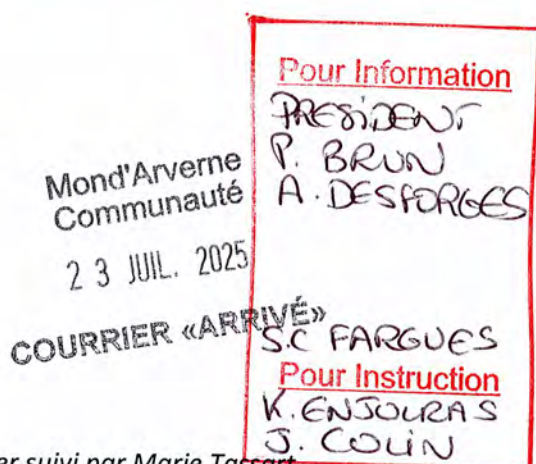 Pour Information
PRESIDENT
P. BRUN
A. DESFORGES
Mond'Arverne
Communauté
23 JUIL. 2025
COURRIER «ARRIVÉ»
S.C FARGUES
Pour Instruction
K. ENJOLRAS
J. COLIN
er suivi par Marie Tassart